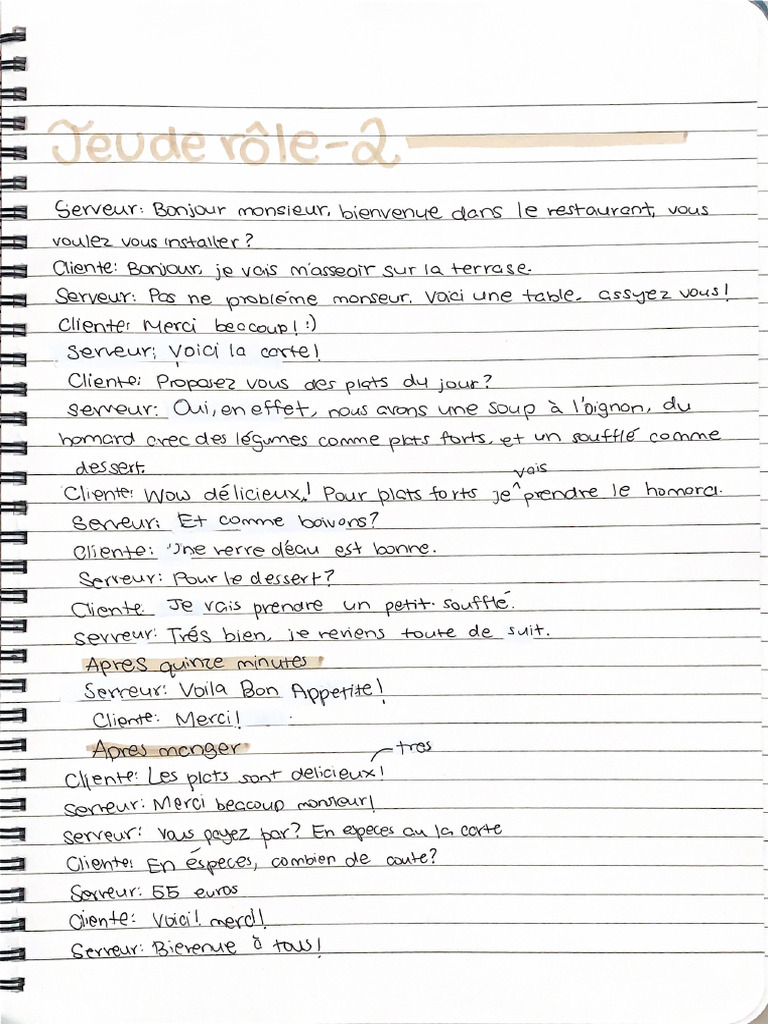 Jeu de rôle-2
Serveur: Bonjour monsieur, bienvenue dans le restaurant, vous
voulez vous installer?
Cliente: Bonjour, je vais m'asseoir sur la terrase.
Serveur: Pas ne probléme monseur. Voici une table, assyez vous!
Cliente: Merci beacoup! :)
Serveur: Voici la carte!
Cliente: Proposez vous des plats du jour?
Serveur: Oui, en effet, nous avons une soup à l'oignon, du
homard avec des légumes comme plats forts, et un soufflé comme
dessert.
vais
Cliente: Wow délicieux! Pour plats forts je ^ prendre le homard.
Serveur: Et comme boivons?
Cliente: Une verre d'éau est bonne.
Serveur: Pour le dessert?
Cliente Je vais prendre un petit soufflé.
Serveur: Trés bien, je reviens toute de suit.
Apres quinze minutes
Serveur: Voila Bon Appetite!
Cliente: Merci!
Apres manger
tres
Cliente: Les plats sont delicieux!
Serveur: Merci beacoup monsieur!
Serveur: Vous payez par? En especes ou la carte
Cliente: En éspeces, combien de coute?
Serveur: 55 euros
Cliente: Voici! merci!
Serveur: Bienvenue à tous!